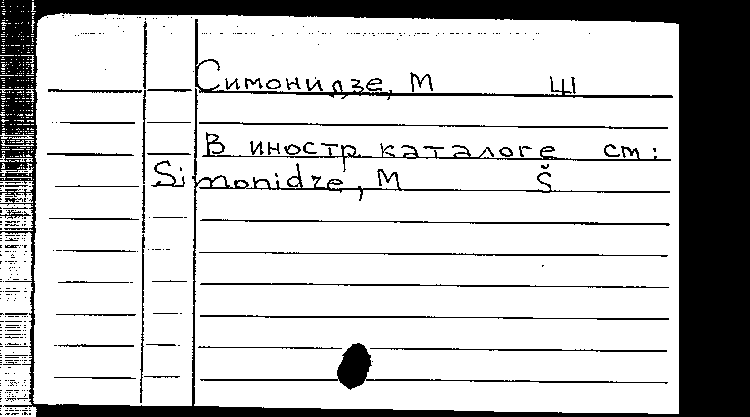 Симонидзе, М Ш
В иностр каталоге см:
Simonidze, M Š